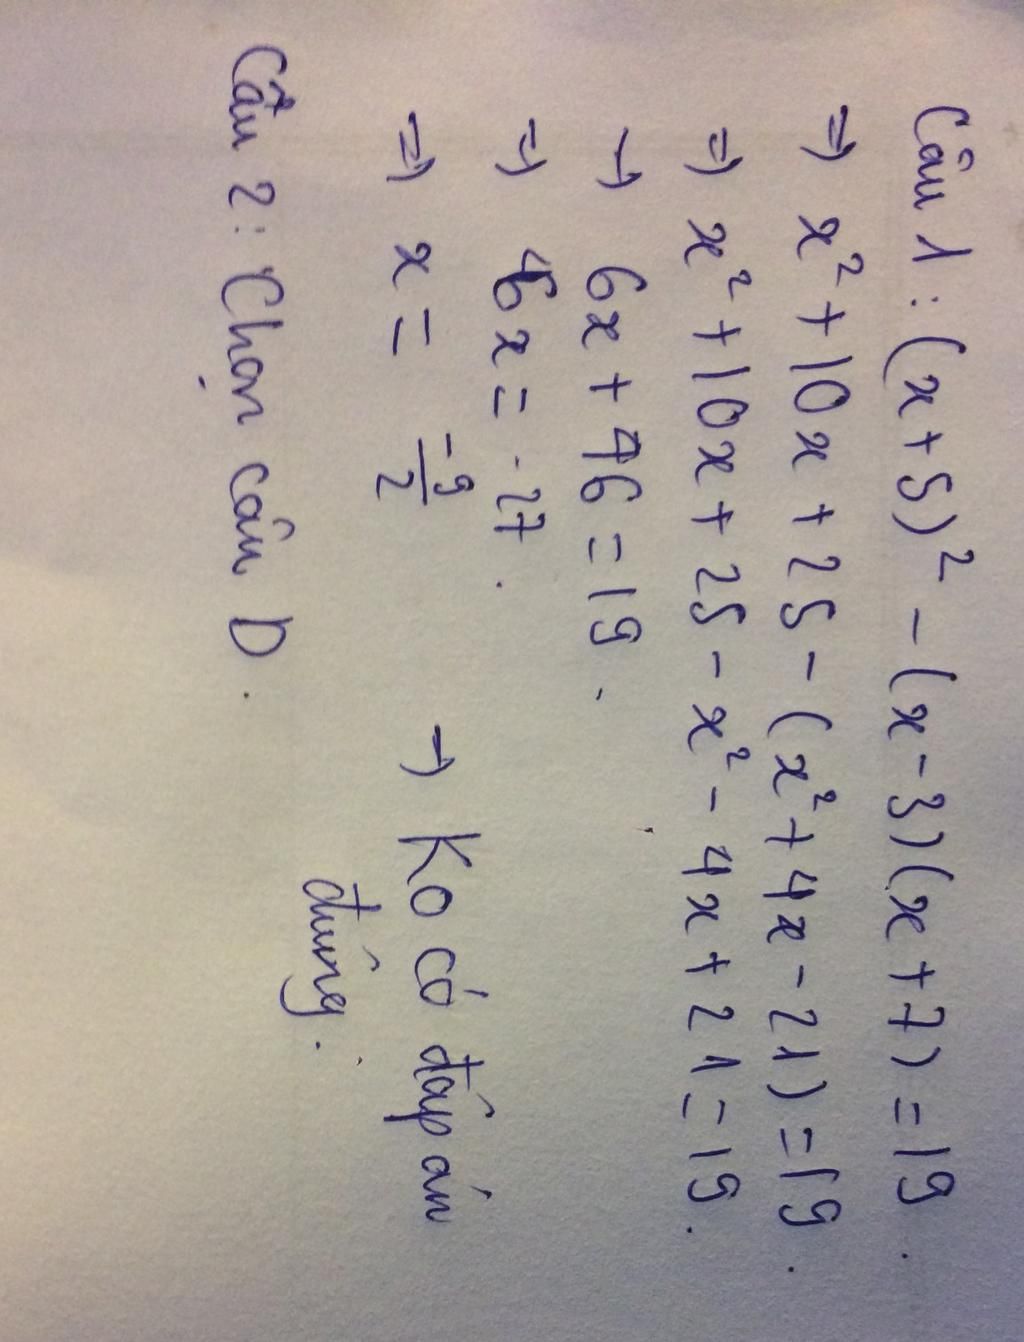 Câu 1: (x+5)² - (x-3)(x+7) = 19.
=> x² + 10x + 25 - (x² + 4x - 21) = 19.
=> x² + 10x + 25 - x² - 4x + 21 = 19.
→ 6x + 46 = 19.
=> 6x = -27.
=> x = -9/2 → Ko có đáp án
đúng.
Câu 2: Chọn câu D.